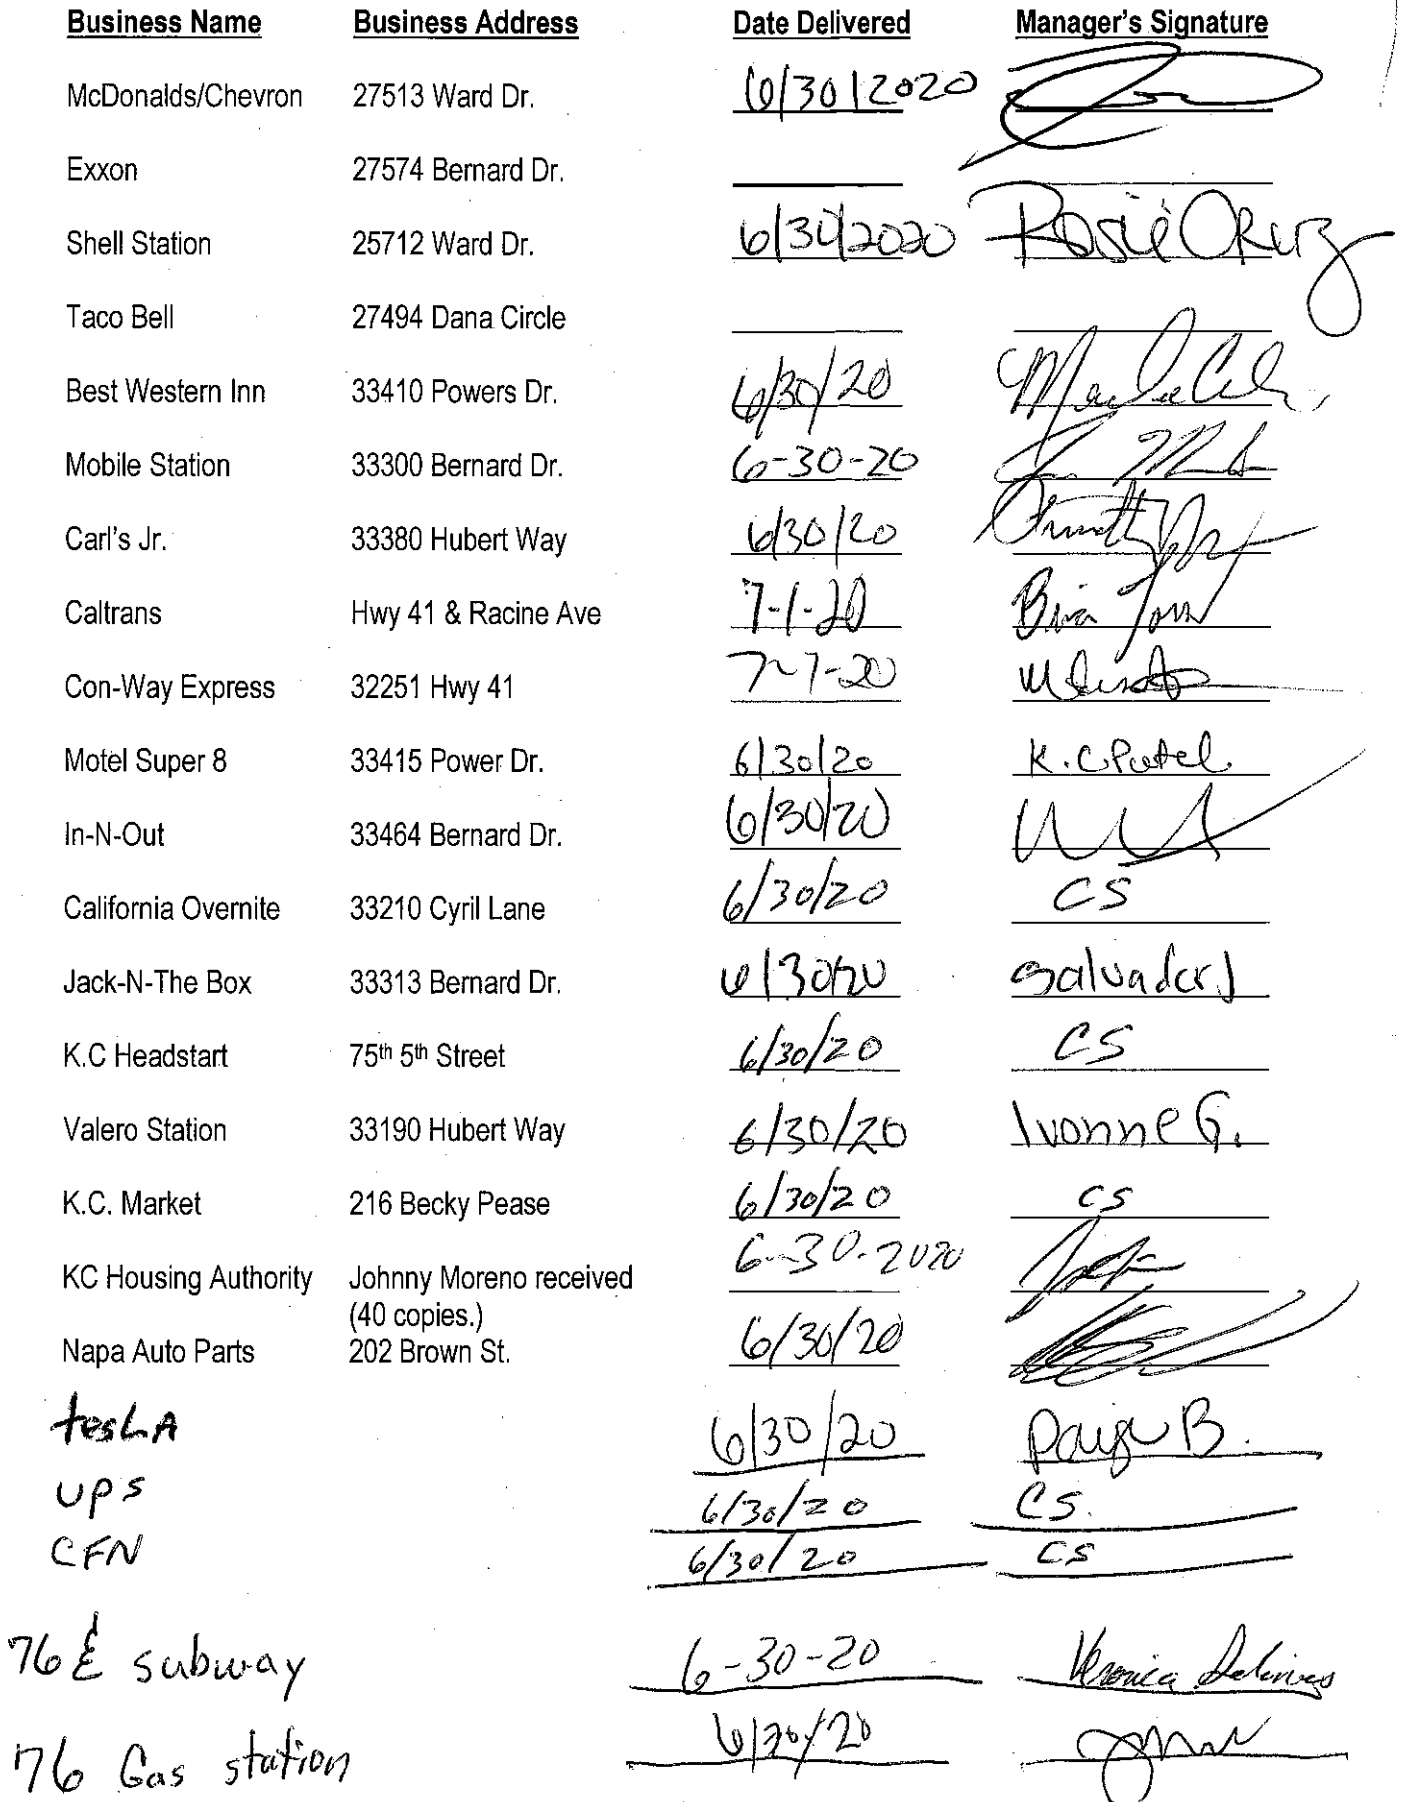 Business Name Business Address Date Delivered Manager's Signature
McDonalds/Chevron 27513 Ward Dr. 6/30/2020
Exxon 27574 Bernard Dr.
Shell Station 25712 Ward Dr. 6/30/2020 Rosie
Taco Bell 27494 Dana Circle
Best Western Inn 33410 Powers Dr. 6/30/20
Mobile Station 33300 Bernard Dr. 6-30-20
Carl's Jr. 33380 Hubert Way 6/30/20
Caltrans Hwy 41 & Racine Ave 7-1-20
Con-Way Express 32251 Hwy 41 7-1-20
Motel Super 8 33415 Power Dr. 6/30/20 K.C Patel
In-N-Out 33464 Bernard Dr. 6/30/20
California Overnite 33210 Cyril Lane 6/30/20 CS
Jack-N-The Box 33313 Bernard Dr. 6/30/20 Salvador J
K.C Headstart 75th 5th Street 6/30/20 CS
Valero Station 33190 Hubert Way 6/30/20 Ivonne G.
K.C. Market 216 Becky Pease 6/30/20 CS
KC Housing Authority Johnny Moreno received 6-30-2020
(40 copies.)
Napa Auto Parts 202 Brown St. 6/30/20
tesLA 6/30/20 Paige B.
UPS 6/30/20 CS.
CFN 6/30/20 CS
76 & subway 6-30-20 Veronica
76 Gas station 6/30/20